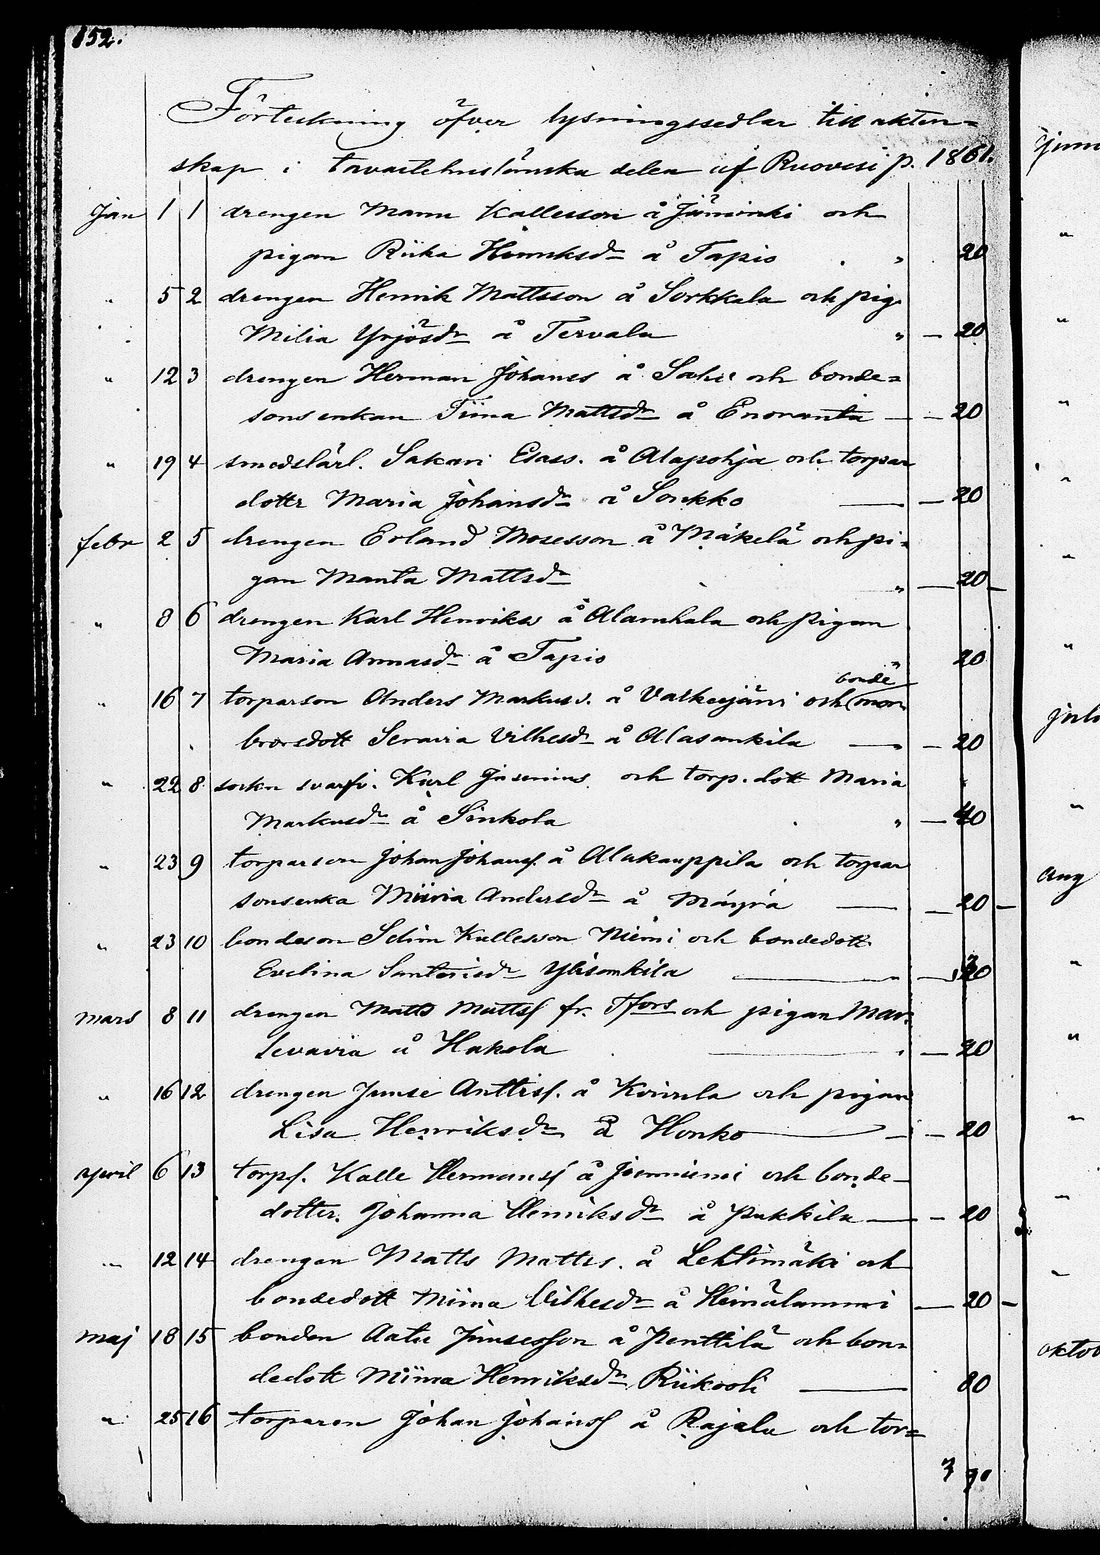 152.
Förteckning öfver lysningssedlar till äkten=
skap i tavastehusländska delen af Ruovesi p. 1861.
Jan 1 1 drengen Manu Kallesson å Jäminki och
pigan Riika Henriksdr å Tapio " 20
" 5 2 drengen Henrik Mattsson å Sorkkala och pig.
Milia Yrjösdr å Tervala " — 20
" 12 3 drengen Herman Johanss å och bonde=
sons enkan Tiina Mattsdr å Enoranta — — 20
" 19 4 smedslärl. Sakari Esass. å Alapohja och torpar
dottr Maria Johansdr å Sonkko — — 20
febr 2 5 drengen Erland Mosesson å Mäkelä och pi=
gan Manta Mattsdr " — 20
" 8 6 drengen Karl Henrikss å Alanhala och pigan
Maria Annasdr å Tapio 20
" 16 7 torparson Anders Markuss. å Valkeejärvi och bonde
brorsdott Seravia Vilhesdr å Alasankila — — 20
" 22 8 sockn svarfv. Karl och torp. dott Maria
Markusdr å Sinkola " — 40
" 23 9 torparson Johan Johanss. å Alakauppila och torpar
sonsenka Miina Andersdr å Mäyrä — — 20
" 23 10 bondeson Selim Kallesson Niemi och bondedott
Evelina Santerisdr Ylisankila — " — 20
mars 8 11 drengen Matts Mattss fr. Tfors och pigan Mar.
Sevavia å Hakola — " — 20
" 16 12 drengen Junse Anttiss. å Koivula och pigan
Lisa Henriksdr å Honko — — 20
april 6 13 torps. Kalle Hermanss å Jänniemi och bonde-
dotter. Johanna Henriksdr å Pukkila — — 20
" 12 14 drengen Matts Mattss. å Lehtimäki och
bondedott Miina Vilhesdr å Heinälammi — 20
maj 18 15 bonden Aatu Junsesson å Penttilä och bon=
dedott Miina Henriksdr Riikooli — 80
" 25 16 torparen Johan Johanss å Rajala och tor=
3 90
juni
"
"
"
"
"
"
juli
"
aug
"
"
"
"
"
oktob